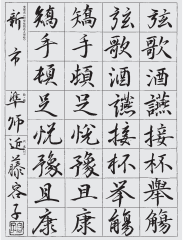 弦歌酒讌接杯舉觴
弦歌酒讌接杯举觴
矯手頓足悦豫且康
矯手頓足悦豫且康
新市 準師 近藤容子